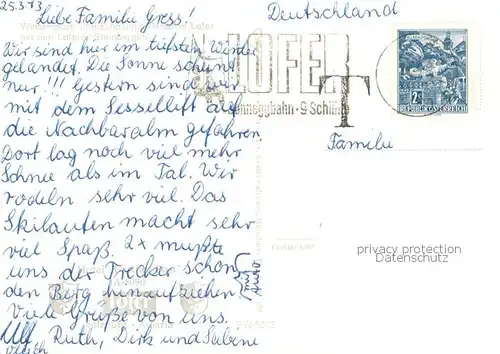 25.3.73
Liebe Familie Gress!
Wir sind hier im tiefsten Winter
gelandet. Die Sonne scheint
nur!!! Gestern sind wir
mit dem Sessellift auf
die Nachbaralm gefahren.
Dort lag noch viel mehr
Schnee als im Tal. Wir
rodeln sehr viel. Das
Skilaufen macht sehr
viel Spaß. 2x mußte
uns der Trecker schon
den Berg hinaufziehen.
(mit Auto)
Viele Grüße von uns.
Ulf, Ruth, Dirk und Sabine
Deutschland
LOFER
9 Schilifte
T
REPUBLIK ÖSTERREICH
Familie
privacy protection
Datenschutz